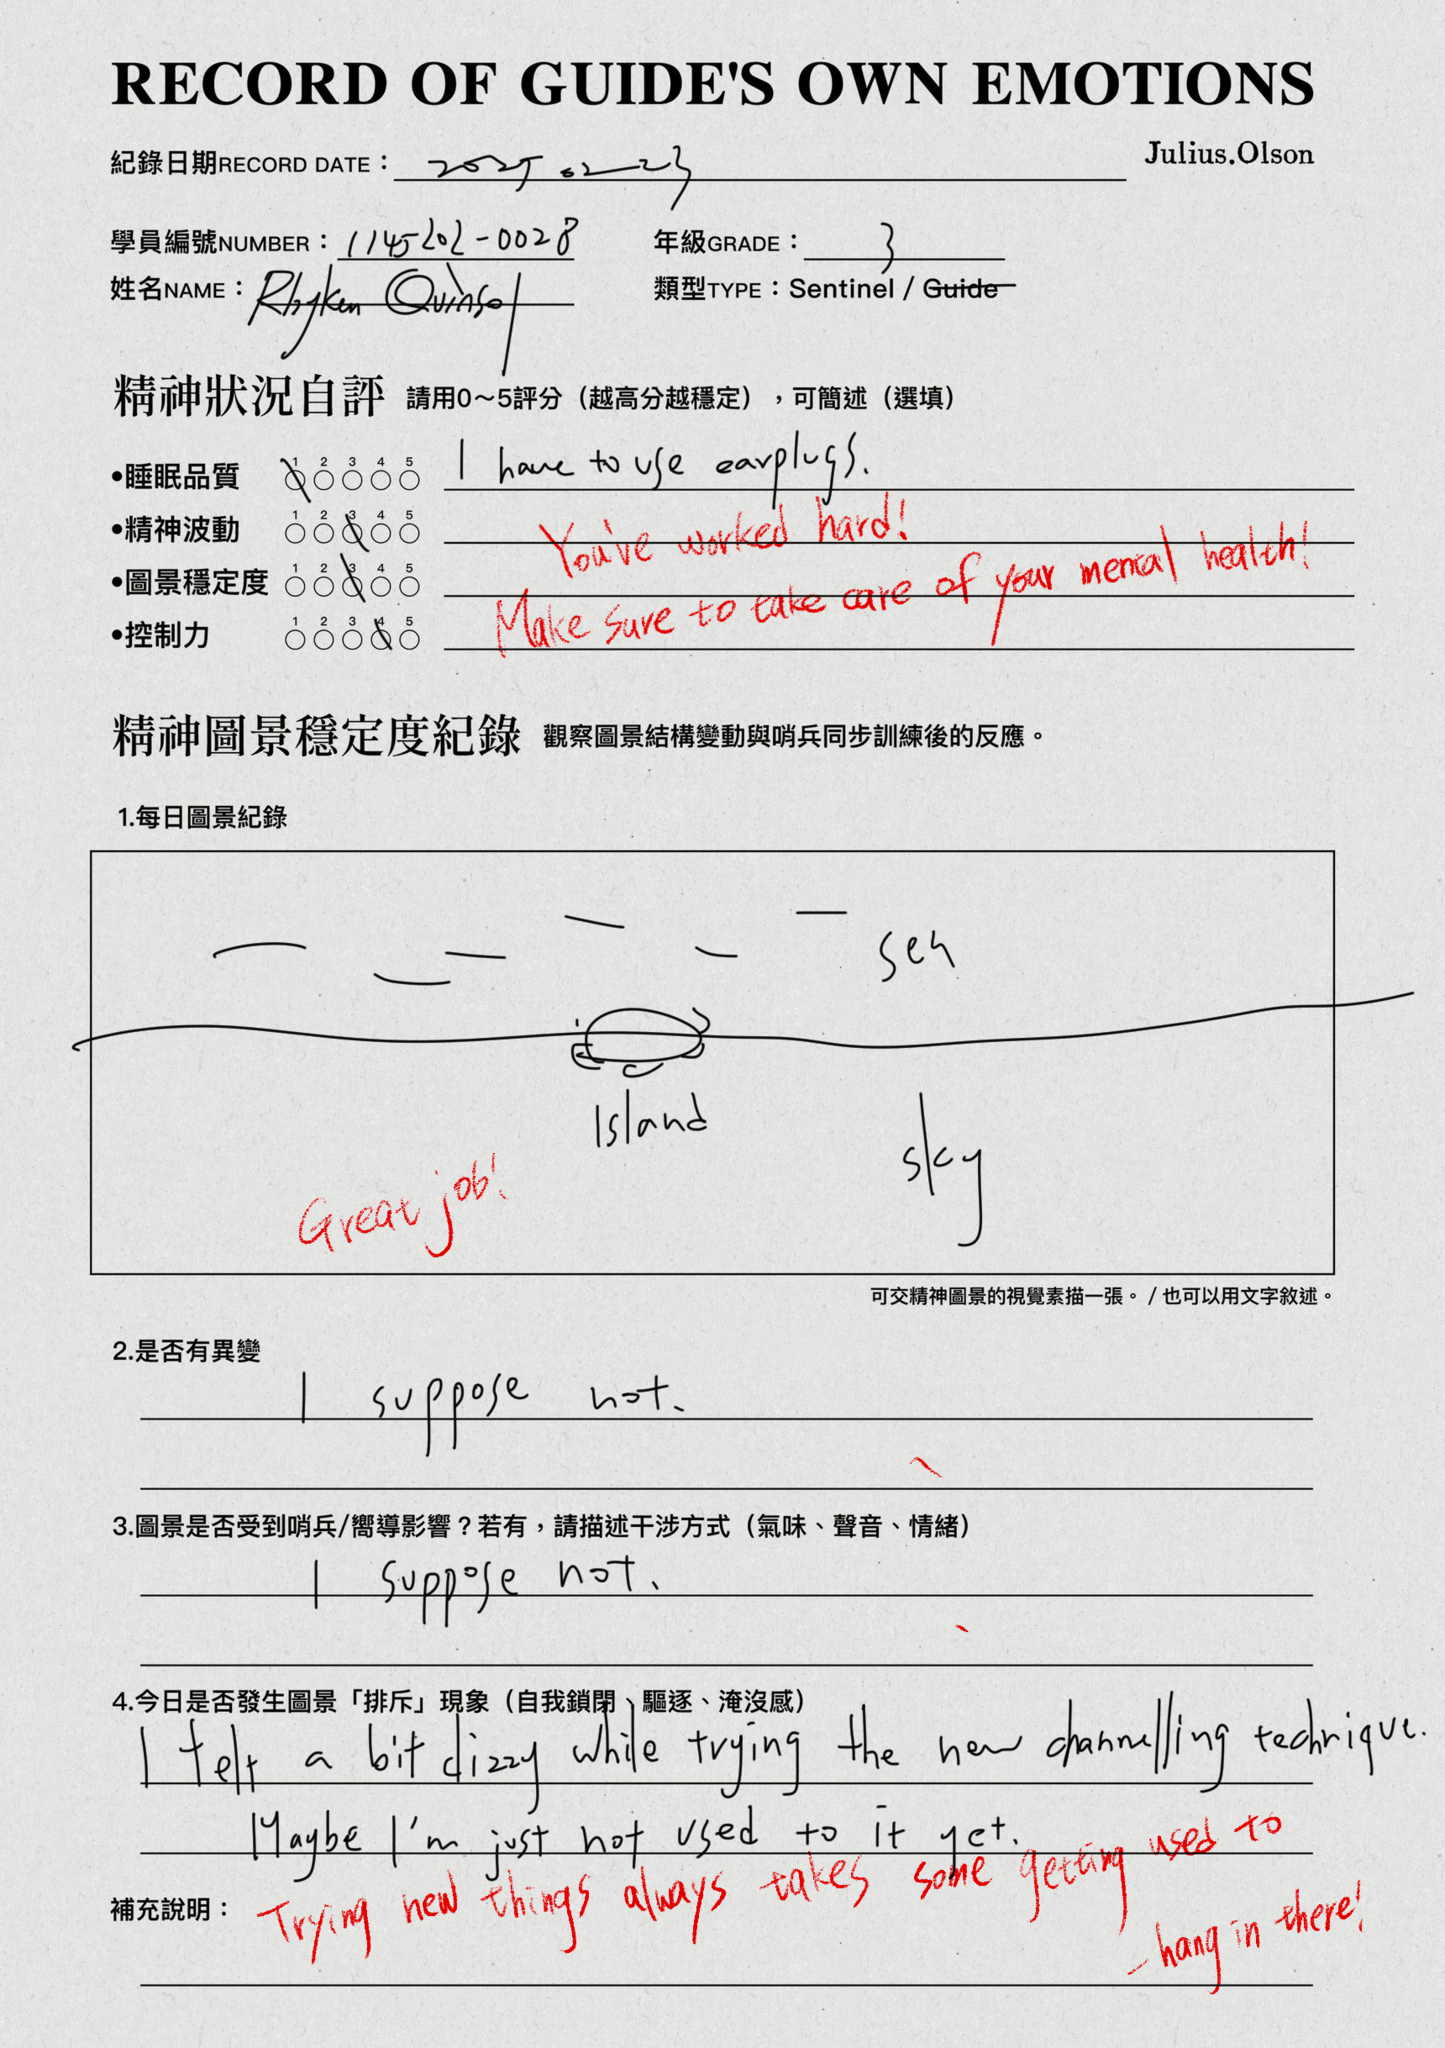 RECORD OF GUIDE'S OWN EMOTIONS
紀錄日期RECORD DATE：2025.02.23
Julius.Olson
學員編號NUMBER：1145202-0028
年級GRADE：3
姓名NAME：Rhyken Quinsol
類型TYPE：Sentinel / Guide
精神狀況自評 請用0～5評分（越高分越穩定），可簡述（選填）
•睡眠品質 1 2 3 4 5 I have to use earplugs.
•精神波動 1 2 3 4 5 You've worked hard!
•圖景穩定度 1 2 3 4 5 Make sure to take care of your mental health!
•控制力 1 2 3 4 5
精神圖景穩定度紀錄 觀察圖景結構變動與哨兵同步訓練後的反應。
1.每日圖景紀錄
sea
Island
sky
Great job!
可交精神圖景的視覺素描一張。/ 也可以用文字敘述。
2.是否有異變
I suppose not.
3.圖景是否受到哨兵/嚮導影響？若有，請描述干涉方式（氣味、聲音、情緒）
I suppose not.
4.今日是否發生圖景「排斥」現象（自我鎖閉、驅逐、淹沒感）
I felt a bit dizzy while trying the new channelling technique.
Maybe I'm just not used to it yet.
補充說明：
Trying new things always takes some getting used to
– hang in there!